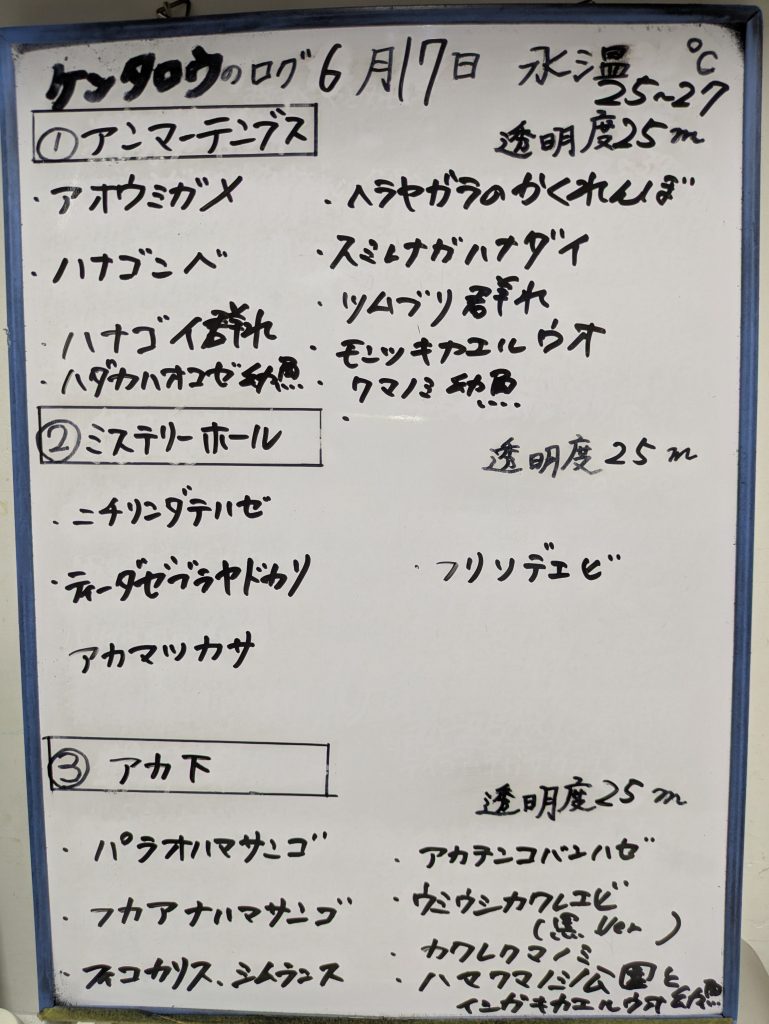 ケンタロウのログ 6月17日 水温 ℃
25~27
①アンマーテンブス 透明度25m
・アオウミガメ
・ハナゴンベ
ハナゴイ群れ
・ハダカハオコゼ幼魚
・ヘラヤガラのかくれんぼ
・スミレナガハナダイ
・ツムブリ群れ
・モンツキカエルウオ
・クマノミ幼魚
・
②ミステリーホール 透明度25m
・ニチリンダテハゼ
・ティーダゼブラヤドカリ
アカマツカサ
・フリソデエビ
③アカ下 透明度25m
・パラオハマサンゴ
・フカアナハマサンゴ
・フィコカリス、シムランス
・アカテンコバンハゼ
・ウミウシカクレエビ
(黒Ver)
・カクレクマノミ
・ハマクマノミ公園と
インガキカエルウオ幼魚